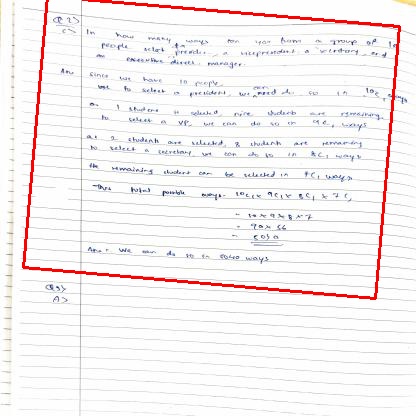 Q2>
C> In how many ways can you from a group of 10
people select a president, a vicepresident, a secretary and
an executive direct. manager.
Ans since we have 10 people,
to select a president, we can do so in 10C1 ways
1 student is selected, nine students are remaining
to select a VP, we can do so in 9C1 ways
as 2 students are selected, 8 students are remaining
to select a secretary we can do so in 8C1 ways
the remaining student can be selected in 7C1 ways
thus total possible ways = 10C1 x 9C1 x 8C1 x 7C1
= 10 x 9 x 8 x 7
= 90 x 56
= 5040
Ans = We can do so in 5040 ways
Q3>
A>